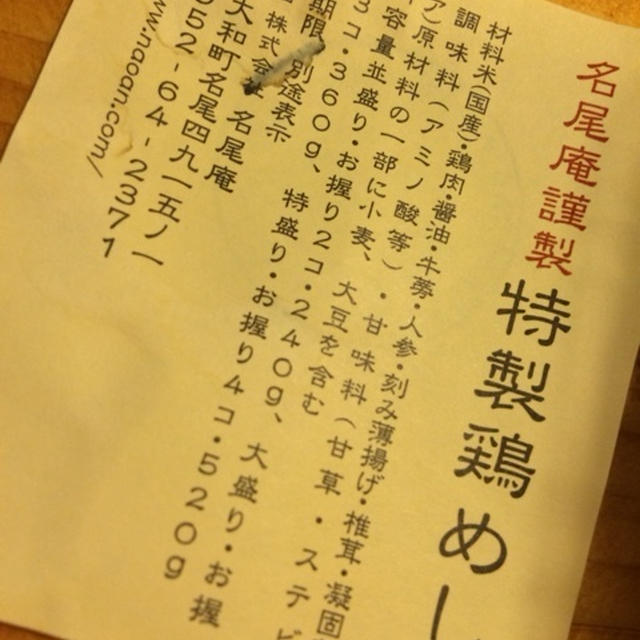 名尾庵謹製 特製鶏めし
材料米(国産)・鶏肉・醤油・牛蒡・人参・刻み薄揚げ・椎茸・凝固
調味料(アミノ酸等)・甘味料(甘草・ステビ
ア)原材料の一部に小麦、大豆を含む
容量並盛り・お握り2コ・240g、大盛り・お握
3コ・360g、特盛り・お握り4コ・520g
期限 別途表示
株式会社 名尾庵
大和町名尾四九一五ノ一
952-64-2371
www.naoan.com/